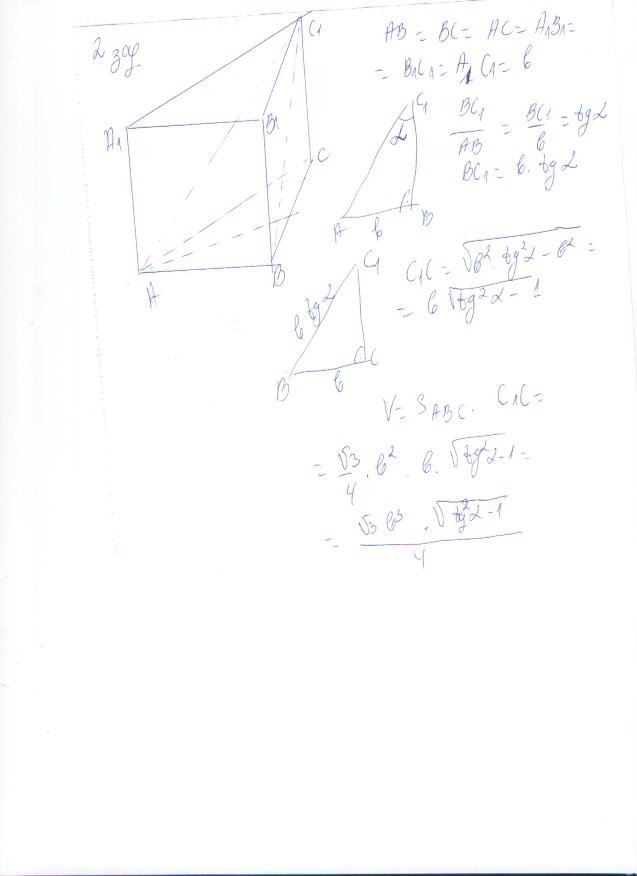 2 зад
AB = BC = AC = A₁B₁ =
= B₁C₁ = A₁C₁ = b
A₁
B₁
C₁
A
B
C
C₁
α
A
b
B
BC₁/AB = BC₁/b = tg α
BC₁ = b · tg α
C₁
b tg α
B
b
C
C₁C = √(b² · tg² α - b²) =
= b √(tg² α - 1)
V = S_ABC · C₁C =
= √3/4 · b² · b · √(tg² α - 1) =
= (√3 b³ · √(tg² α - 1))/4